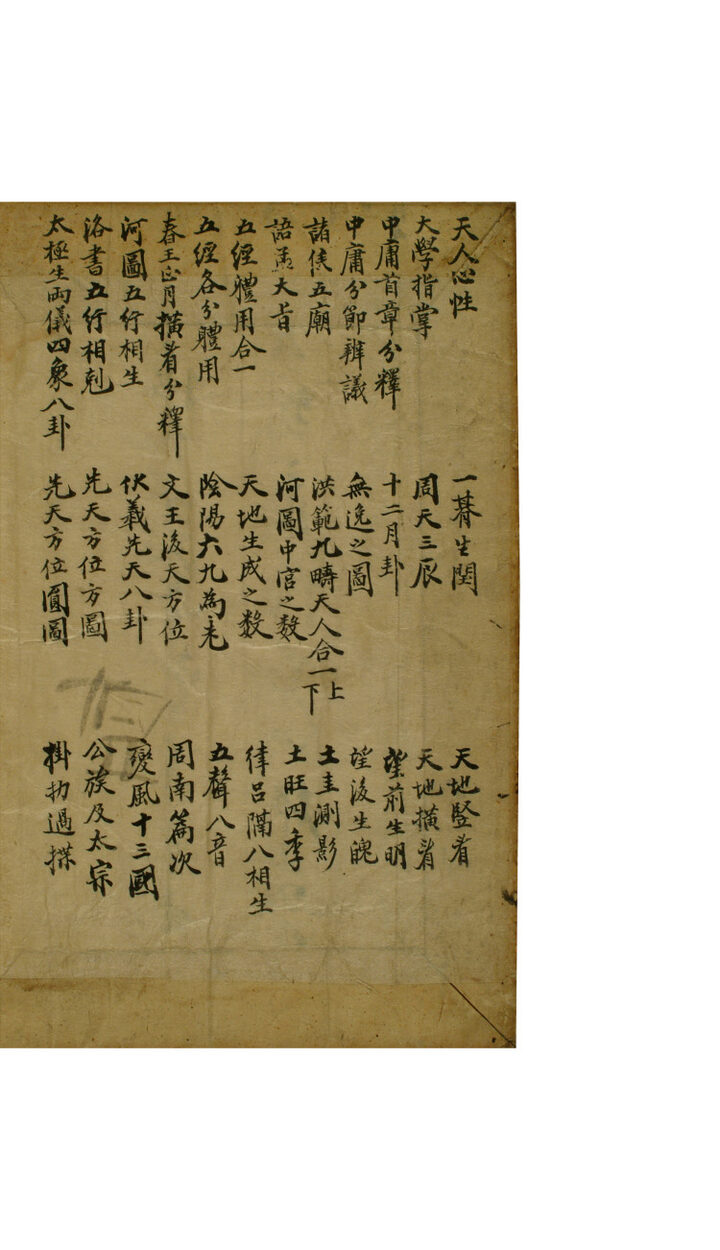 天人心性
大學指掌
中庸首章分釋
中庸分節辨議
諸侯五廟
語孟大旨
五經體用合一
五經各分體用
春王正月橫看分釋
河圖五行相生
洛書五行相剋
太極生兩儀四象八卦
一朞生閏
周天三辰
十二月卦
無逸之圖
洪範九疇天人合一上下
河圖中宮之数
天地生成之数
陰陽六九為老
文王後天方位
伏羲先天八卦
先天方位方圖
先天方位圓圖
天地竪看
天地橫看
望前生明
望後生魄
土圭測影
土旺四季
律呂隔八相生
五聲八音
周南篇次
變風十三國
公族及太宗
掛扐過揲